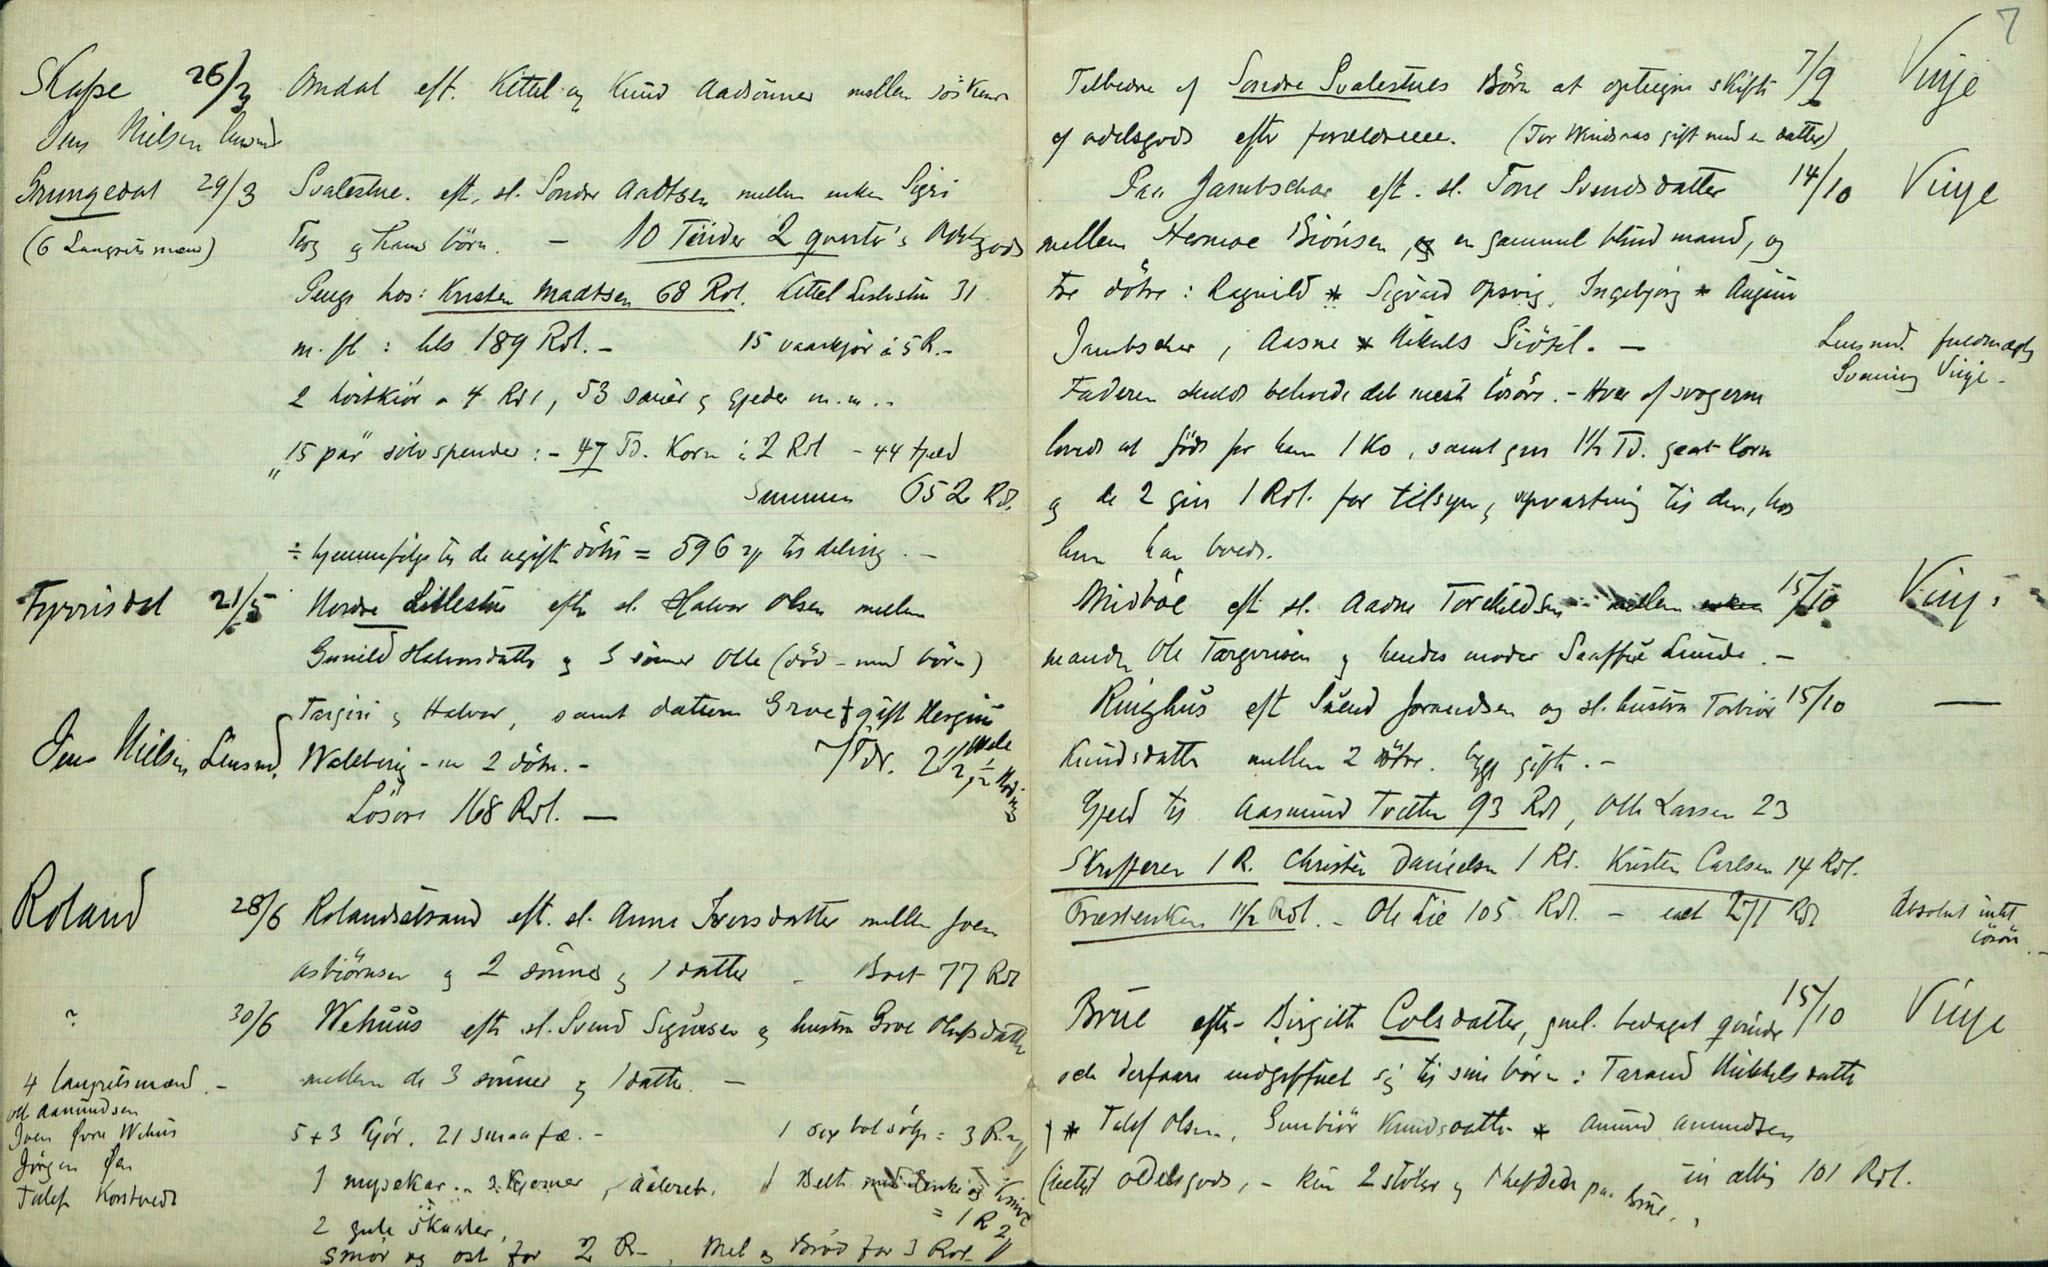 Skafse 26/3 Omdal eft. Kittel og Knud Aadsönner mellem söskende
Jens Nielsen lensmd
Grungedal 29/3 Svalestue. eft. sl. Sondre Aadtsen mellem enken Sigri
(6 Laugrets mænd) Torg og hans börn. — 10 Tönder 2 qvarter's Odelsgods
Penge hos: Kristen Madtsen 68 Rdl. Kittel Leslestu 31
m. fl: tils 189 Rdl. — 15 vaarkjör à 5 R. —
2 höstkiör a 4 Rdl, 53 sauer og gjeder m.m. -
"15 par" sölvspender: - 47 Td. Korn à 2 Rdl - 44 fjeld
Summen 652 Rdl.
÷ hjemmefölge til de ugifte dötre = 596 rp til deling. —
Fyrrisdal 21/5 Nordre Lillestue efter sl. Halvor Olsen mellem
Gunild Halvorsdatter og 3 sönner Olle (död - med börn)
Targiri og Halvor, samt datteren Groe † gift Hergius
Jens Nielsen Lensmd. Waleberg - m 2 dötre. —
7 Tdr. 2 1/2
Lösöre 168 Rdl. —
Roland 28/6 Rolandsstrand eft. sl. Anne Iversdatter mellem Joen
Asbiörnsen og 2 sönner og 1 datter - Boet 77 Rdl
~ 30/6 Wehuus efter sl. Svend Sigursen og hustru Groe Olufsdatter
4 laugretsmænd. - mellem de 3 sönner og 1 datter. —
Oll Aamundsen
Joen Övre Wehus 5 + 3 Kjör. 21 smaa fæ. - 1 sexbol sölje = 3 R.
Jörgen Öen
Talef Korstvedt 1 mysekar 2 Kjerner, 1 Belt med lenke og Knive = 1 R 2
2 gule skaaler,
smör og ost for 2 R - , Mel og Bröd for 3 Rdl
7
Tilbedne af Sondre Svalestues Börn at optegne skifte 7/9 Vinje
af odelsgods efter forældrene. (Tor Windsaas gift med en datter)
Paa Jambschar eft. sl. Tone Svendsdatter 14/10 Vinje
mellem Hermoe Biönsen, en gammel blind mand, og
tre dötre: Ragnild * Sigurd Opsvig, Ingebjörg * Augun
Jambschar, Aasne * Mikals Siösel. — Lensmd. fuldmægtig
Svening Vinje -
Faderen skulde beholde det meste lösöre. - Hver af svogerne
lovede at föde for ham 1 Ko, samt give 1 1/2 Td. godt Korn
og de 2 give 1 Rdl. for tilsyn og opvartning til den, hos
hvem han boede.
Midböe eft sl. Aadne Torchildsen mellem 15/10 Vinje
manden Ole Targiersen og hendes moder Saaffue Lunde. —
Ringhus eft Svend Jorandsen og sl. hustru Torbiör 15/10 —
Knudsdatter mellem 2 dötre. begge gifte. -
Gjeld til Aasmund Tveiten 93 Rdl, Olle Larssen 23
Skrifveren 1 R. Christen Danielsen 1 Rd. Kristen Carlsen 14 Rdl.
Præstenken 1 1/2 Rdl. - Ole Lie 105 Rdl. - ialt 271 Rdl Absolut intet
lösöre. -
Brue efter Birgith Colsdatter, gml. bedaget qvinde 15/10 Vinje
och derfaare indgiffuet sig til sine börn: Tarand Mikkelsdatter
* Talef Olsen, Gunbiör Knudsdatter * Amund Amundsen
(intet) odelsgods, - kun 2 stöler og 1 hefseter paa brue. in alt 101 Rdl.